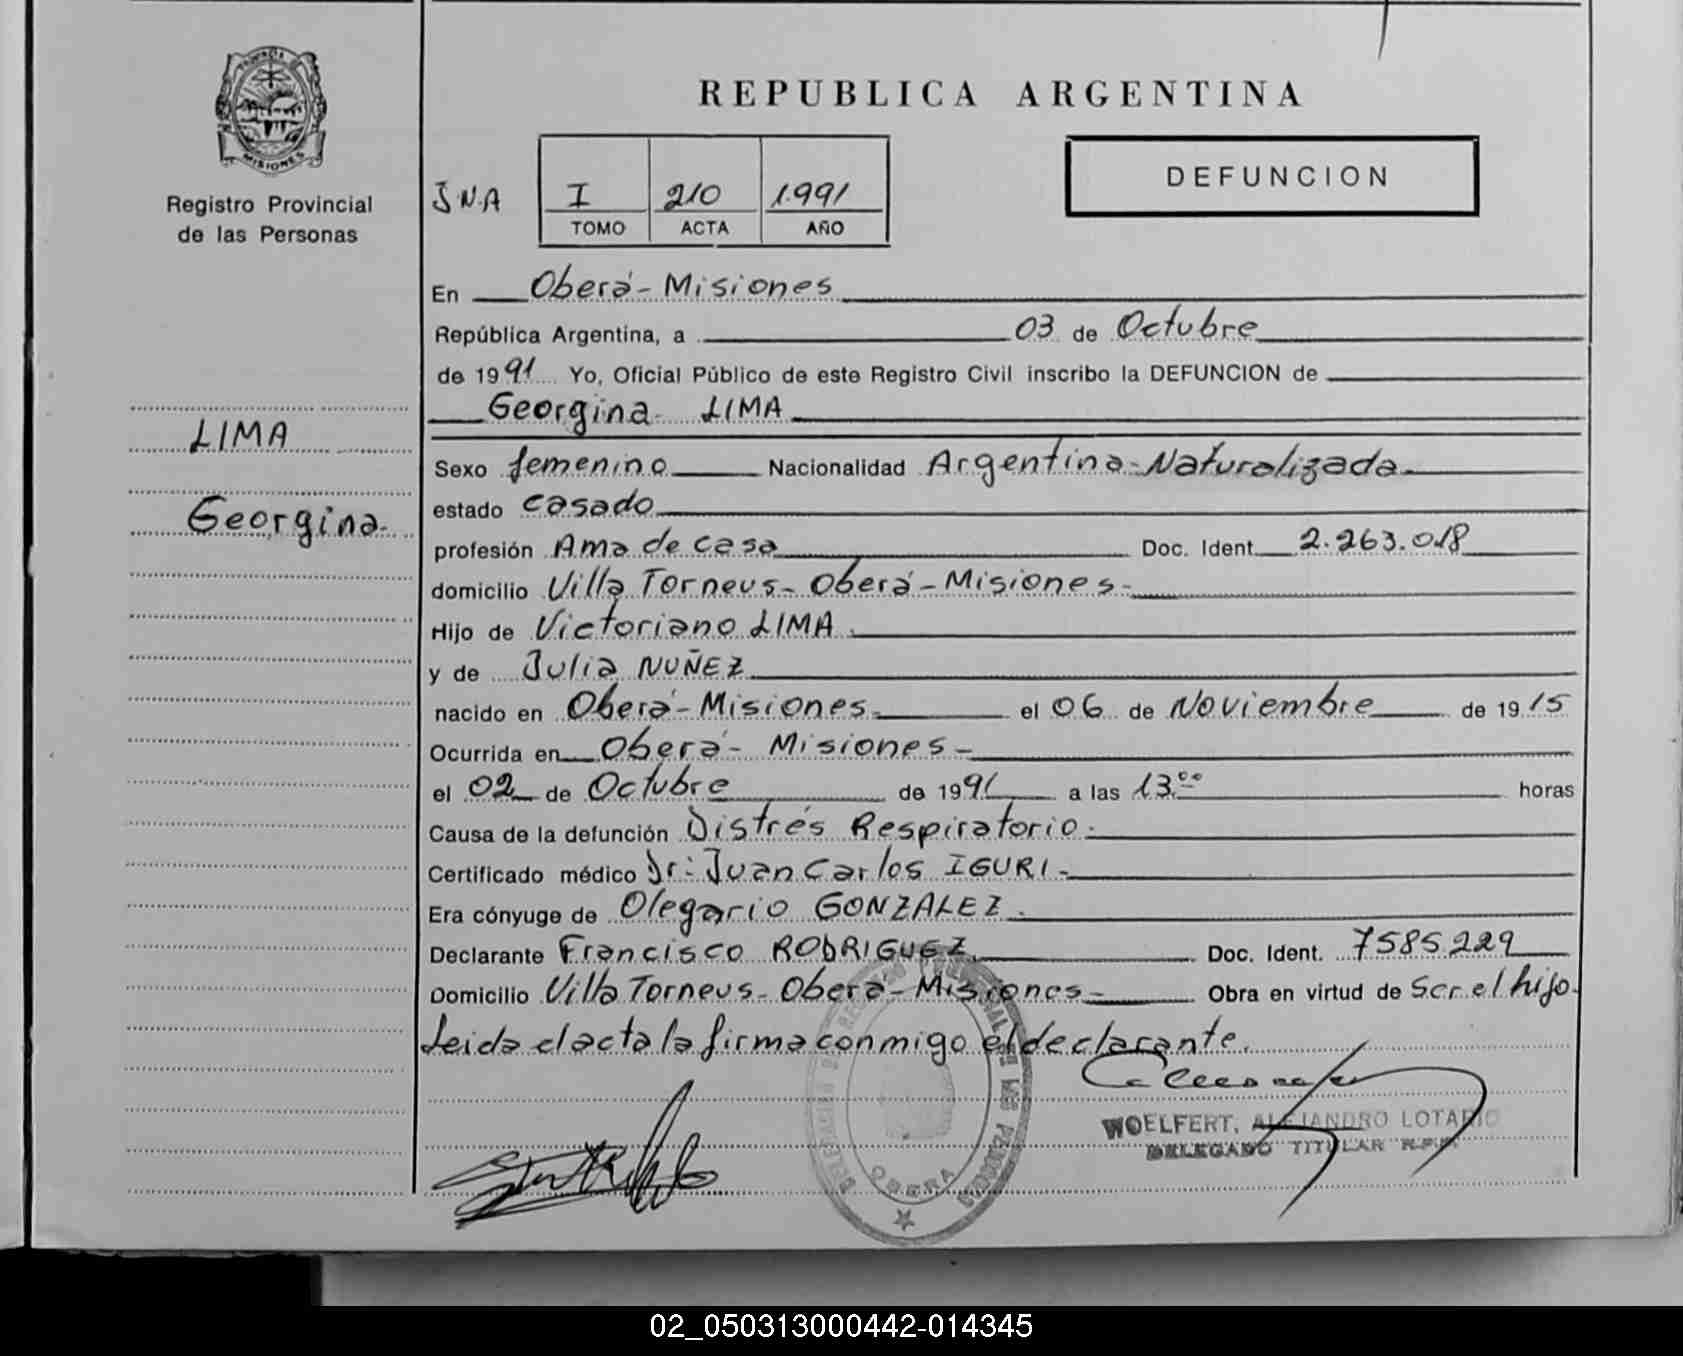 PROVINCIA DE
MISIONES
Registro Provincial
de las Personas
LIMA
Georgina
REPUBLICA ARGENTINA
J.N.A
I 210 1.991
TOMO ACTA AÑO
DEFUNCION
En Oberá - Misiones
República Argentina, a 03 de Octubre
de 1991 Yo, Oficial Público de este Registro Civil inscribo la DEFUNCION de
Georgina LIMA
Sexo femenino Nacionalidad Argentina-Naturalizada-
estado casado
profesión Ama de casa Doc. Ident. 2.263.018
domicilio Villa Torneus - Oberá - Misiones -
Hijo de Victoriano LIMA.
y de Julia NUÑEZ
nacido en Oberá - Misiones - el 06 de Noviembre de 1915
Ocurrida en Oberá - Misiones -
el 02 de Octubre de 1991 a las 13.00 horas
Causa de la defunción Distrés Respiratorio.-
Certificado médico Dr: Juan Carlos IGURI.-
Era cónyuge de Olegario GONZALEZ.
Declarante Francisco RODRIGUEZ Doc. Ident. 7585229
Domicilio Villa Torneus - Oberá - Misiones - Obra en virtud de Ser el hijo.
Leida el acta la firma conmigo el declarante.
WOELFERT, ALEJANDRO LOTARIO
DELEGADO TITULAR R.P.P.
OBERA
02_050313000442-014345